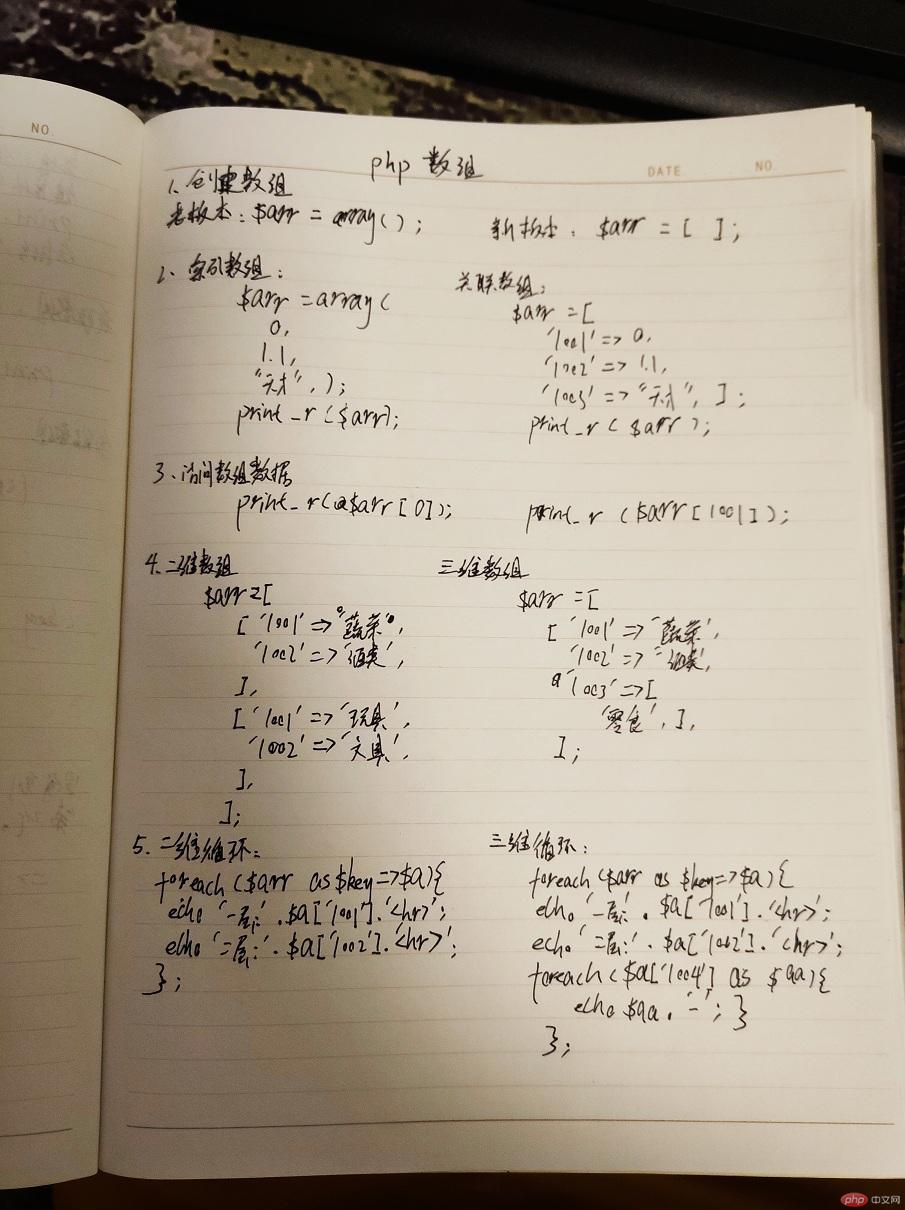 NO.
php 数组
DATE NO.
1、创建数组
老版本：$arr = array();
新版本：$arr = [ ];
2、索引数组：
$arr = array(
0,
1.1,
"天才",);
print_r($arr);
关联数组：
$arr = [
'1001' => 0,
'1002' => 1.1,
'1003' => "天才", ];
print_r ( $arr );
3、访问数组数据
print_r($arr[0]);
print_r ($arr[1001]);
4、二维数组
$arr=[
['1001' => "蔬菜",
'1002' => '酒类',
],
['1001' => '玩具',
'1002' => '文具',
],
];
三维数组
$arr = [
[ '1001' => '蔬菜',
'1002' => '酒类',
'1003' => [
'零食', ],
];
5、二维循环：
foreach ($arr as $key=>$a){
echo '一层:' . $a['1001'].'<hr>';
echo '二层:' . $a['1002'].'<hr>';
};
三维循环：
foreach ($arr as $key=>$a){
echo '一层:' . $a['1001'].'<hr>';
echo '二层:' . $a['1002'].'<hr>';
foreach($a['1004'] as $aa){
echo $aa . '-'; }
};
php 中文网